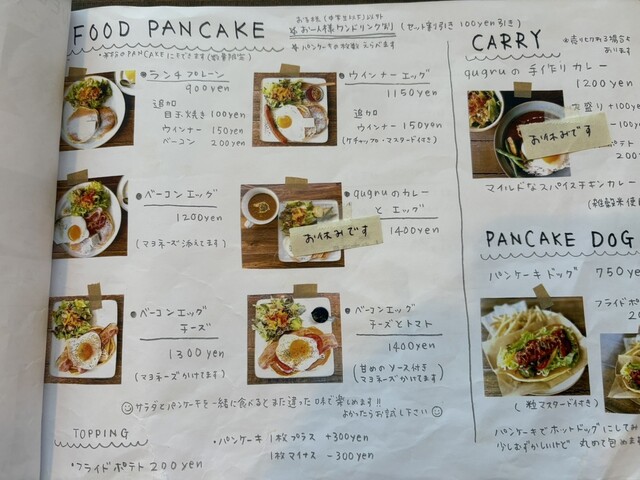 FOOD PANCAKE
お子様(中学生以下)以外
※お一人様ワンドリンク制 (セット割り引き 100yen引き)
※パンケーキの枚数えらべます
ランチプレーン
900yen
追加
目玉焼き 100yen
ウインナー 150yen
ベーコン 200yen
ウインナーエッグ
1150yen
追加
ウインナー 150yen
(ケチャップ・マスタード付き)
ベーコンエッグ
1200yen
(マヨネーズ添えてます)
guguruのカレー
と エッグ
1400yen
お休みです
ベーコンエッグ
チーズ
1300yen
(マヨネーズかけてます)
ベーコンエッグ
チーズとトマト
1400yen
(甘めのソース付き
マヨネーズかけてます)
サラダとパンケーキを一緒に食べるとまた違った味で楽しめます!!
よかったらお試し下さい
TOPPING
・フライドポテト 200yen
・パンケーキ 1枚プラス +300yen
1枚マイナス -300yen
CARRY
guguruの手作りカレー
1200yen
盛り +100y
お休みです
-100y
ポテト
200
マイルドなスパイスチキンカレー
PANCAKE DOG
パンケーキドッグ 750ye
フライドポ
20
(粒マスタード付き)
パンケーキでホットドッグにしてみ
少しむずかしいけど 丸めて包めます